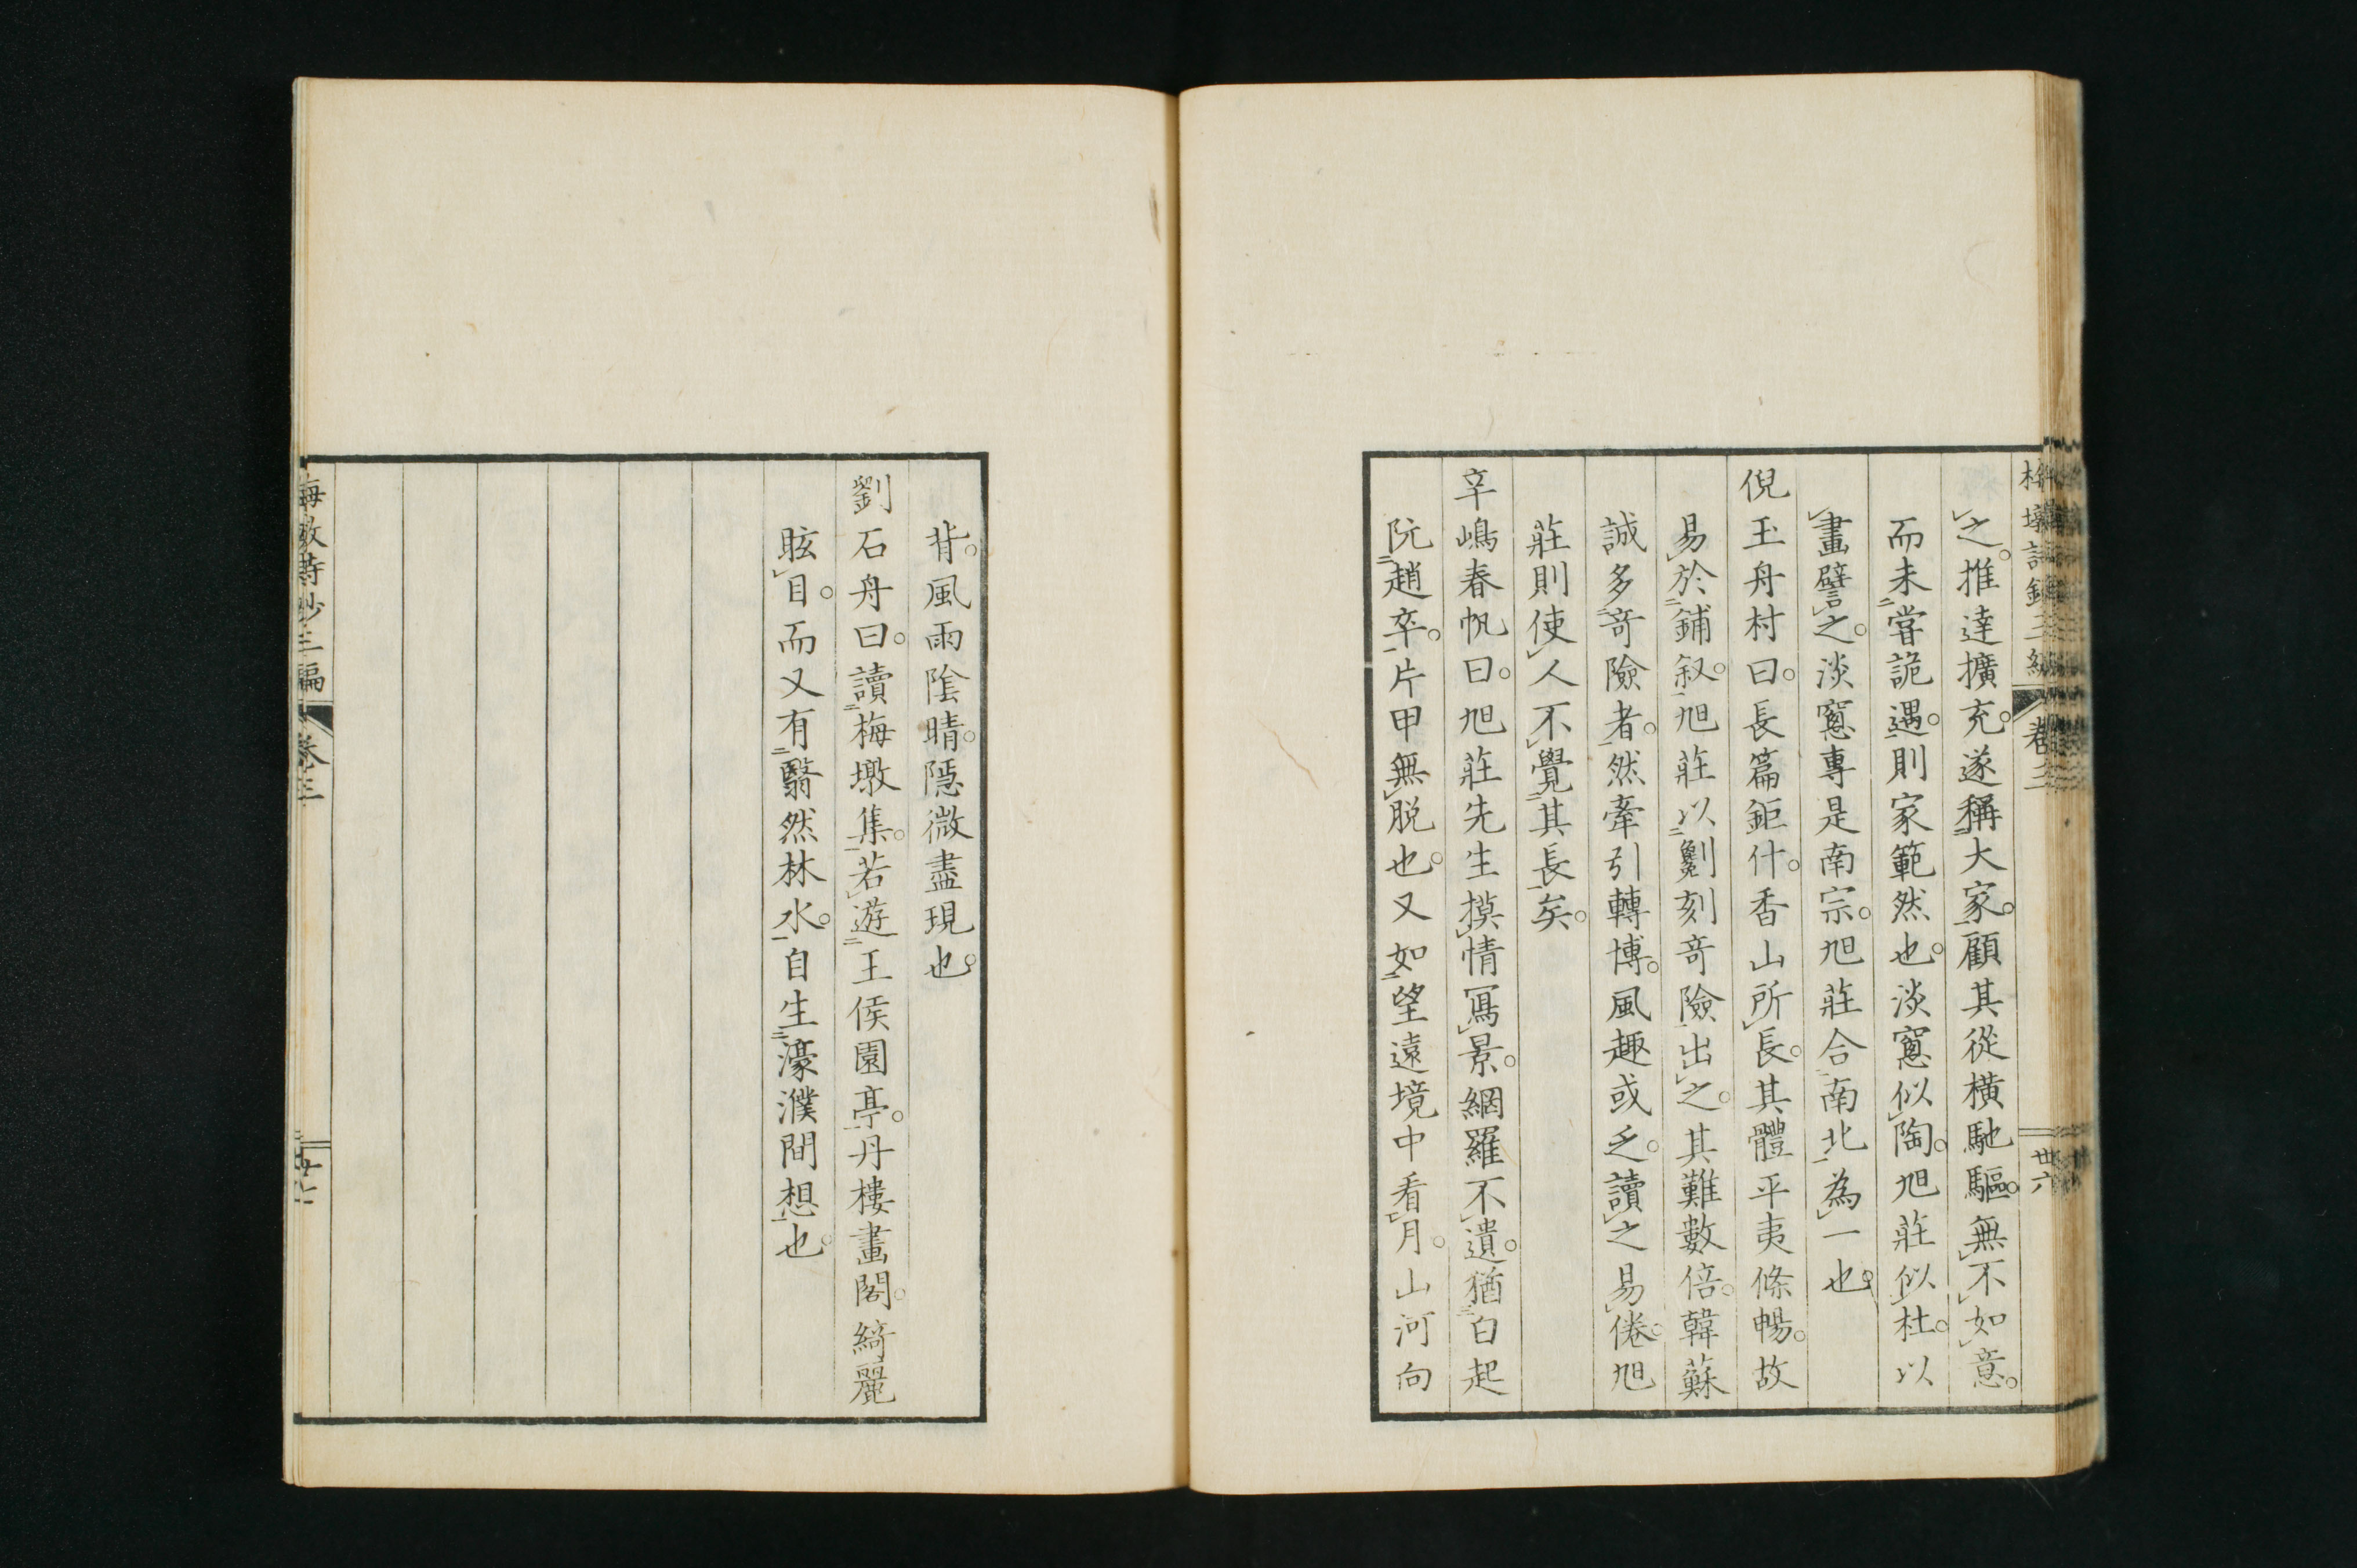 之。推達擴充。遂稱大家。顧其從橫馳驅。無不如意。
而未嘗詭遇。則家範然也。淡窻似陶。旭莊似杜。以
畫譬之。淡窻專是南宗。旭莊合南北為一也。
倪玉舟村曰。長篇鉅什。香山所長。其體平夷條暢。故
易於鋪叙。旭莊以劖刻奇險出之。其難數倍。韓蘇
誠多奇險者。然牽引轉博。風趣或乏。讀之易倦。旭
莊則使人不覺其長矣。
辛嶋春帆曰。旭莊先生摸情寫景。網羅不遺。猶白起
阬趙卒。片甲無脱也。又如望遠境中看月。山河向
背。風雨陰晴。隱微盡現也。
劉石舟曰。讀梅墩集。若遊王侯園亭。丹樓畫閣。綺麗
眩目。而又有翳然林水。自生濠濮間想也。
梅墩詩鈔三編 卷三